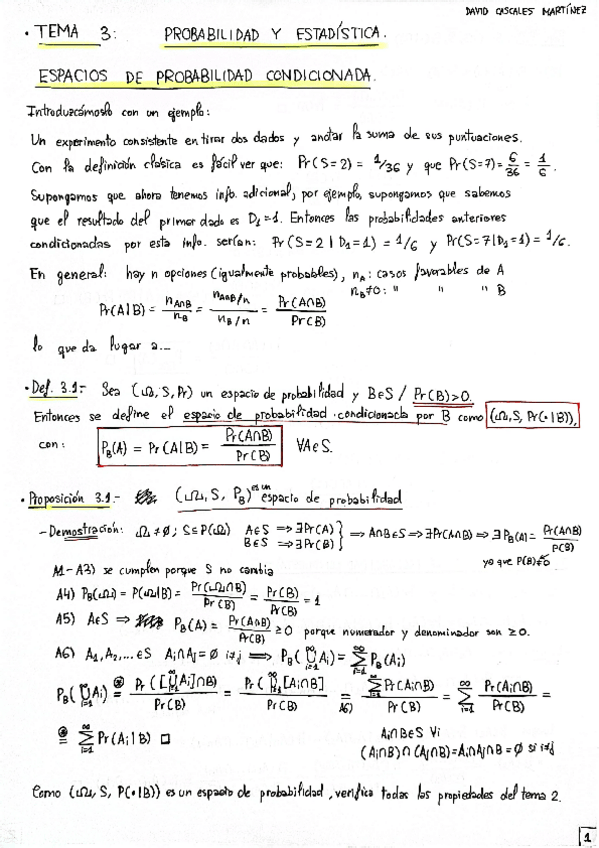 DAVID CASCALES MARTÍNEZ
· TEMA 3: PROBABILIDAD Y ESTADÍSTICA.
ESPACIOS DE PROBABILIDAD CONDICIONADA.
Introduzcámoslo con un ejemplo:
Un experimento consistente en tirar dos dados y anotar la suma de sus puntuaciones.
Con la definición clásica es fácil ver que: Pr(S=2) = 1/36 y que Pr(S=7) = 6/36 = 1/6.
Supongamos que ahora tenemos info. adicional, por ejemplo, supongamos que sabemos
que el resultado del primer dado es D₁=1. Entonces las probabilidades anteriores
condicionadas por esta info. serían: Pr(S=2|D₁=1) = 1/6 y Pr(S=7|D₁=1) = 1/6.
En general: hay n opciones (igualmente probables), n_A: casos favorables de A
n_B≠0: " " " B
Pr(A|B) = n_{A∩B}/n_B = (n_{A∩B}/n)/(n_B/n) = Pr(A∩B)/Pr(B)
lo que da lugar a...
· Def. 3.1:- Sea (Ω, S, Pr) un espacio de probabilidad y B∈S / Pr(B)>0.
Entonces se define el espacio de probabilidad condicionada por B como (Ω, S, Pr(·|B)),
con: P_B(A) = Pr(A|B) = Pr(A∩B)/Pr(B) ∀A∈S.
· Proposición 3.1.- (Ω, S, P_B) es un espacio de probabilidad
- Demostración: Ω≠∅; S⊆P(Ω) A∈S ⟹ ∃Pr(A) B∈S ⟹ ∃Pr(B) } ⟹ A∩B∈S ⟹ ∃Pr(A∩B) ⟹ ∃P_B(A) = Pr(A∩B)/P(B)
ya que P(B)≠0
A1-A3) se cumplen porque S no cambia
A4) P_B(Ω) = P(Ω|B) = Pr(Ω∩B)/Pr(B) = Pr(B)/Pr(B) = 1
A5) A∈S ⟹ P_B(A) = Pr(A∩B)/Pr(B) ≥ 0 porque numerador y denominador son ≥0.
A6) A₁, A₂, ... ∈S A_i∩A_j=∅ i≠j ⟹ P_B(⋃_{i=1}^∞ A_i) = ∑_{i=1}^∞ P_B(A_i)
P_B(⋃_{i=1}^∞ A_i) = Pr([⋃_{i=1}^∞ A_i]∩B)/Pr(B) = Pr(⋃_{i=1}^∞ [A_i∩B])/Pr(B) =_{A6)} ∑_{i=1}^∞ Pr(A_i∩B)/Pr(B) = ∑_{i=1}^∞ Pr(A_i∩B)/Pr(B) =
= ∑_{i=1}^∞ Pr(A_i|B) □
A_i∩B∈S ∀i
(A_i∩B)∩(A_j∩B)=A_i∩A_j∩B=∅ si i≠j
Como (Ω, S, P(·|B)) es un espacio de probabilidad, verifica todas las propiedades del tema 2.
1